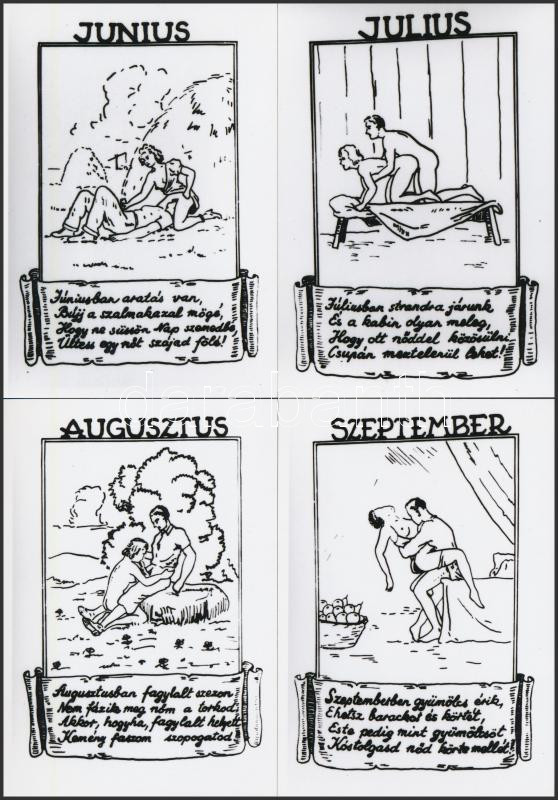 JUNIUS
Júniusban aratás van,
Bújj a szalmakazal mögé,
Hogy ne süssön Nap szemedbe,
Ültess egy nőt szájad fölé!
JULIUS
Júliusban strandra járunk
És a kabin olyan meleg,
Hogy ott nőddel közösülni
Csupán meztelenül lehet!
darabanth
AUGUSZTUS
Augusztusban fagylalt szezon
Nem fázik meg nőm a torkod,
Akkor, hogyha, fagylalt helyett
Kemény faszom szopogatod!
SZEPTEMBER
Szeptemberben gyümölcs érik,
Ehetsz barackot és körtét,
Este pedig mint gyümölcsöt
Kóstolgasd nőd körte mellét!